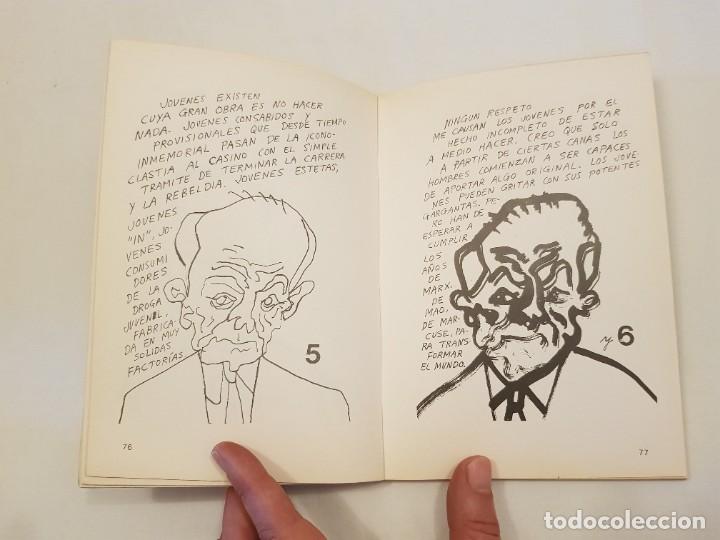 JOVENES EXISTEN
CUYA GRAN OBRA ES NO HACER
NADA. JOVENES CONSABIDOS Y
PROVISIONALES QUE DESDE TIEMPO
INMEMORIAL PASAN DE LA ICONO-
CLASTIA AL CASINO CON EL SIMPLE
TRAMITE DE TERMINAR LA CARRERA
Y LA REBELDIA. JOVENES ESTETAS,
JOVENES
"IN", JO-
VENES
CONSUMI
DORES
DE LA
DROGA
JUVENIL,
FABRICA-
DA EN MUY
SOLIDAS
FACTORÍAS
5
76
NINGUN RESPETO
ME CAUSAN LOS JOVENES POR EL
HECHO INCOMPLETO DE ESTAR
A MEDIO HACER. CREO QUE SOLO
A PARTIR DE CIERTAS CANAS LOS
HOMBRES COMIENZAN A SER CAPACES
DE APORTAR ALGO ORIGINAL. LOS JOVE
NES PUEDEN GRITAR CON SUS POTENTES
GARGANTAS. PE-
RO HAN DE
ESPERAR A
CUMPLIR
LOS
AÑOS
DE
MARX,
DE
MAO,
DE MAR-
CUSE, PA-
RA TRANS
FORMAR
EL MUNDO.
6
77
todocoleccion